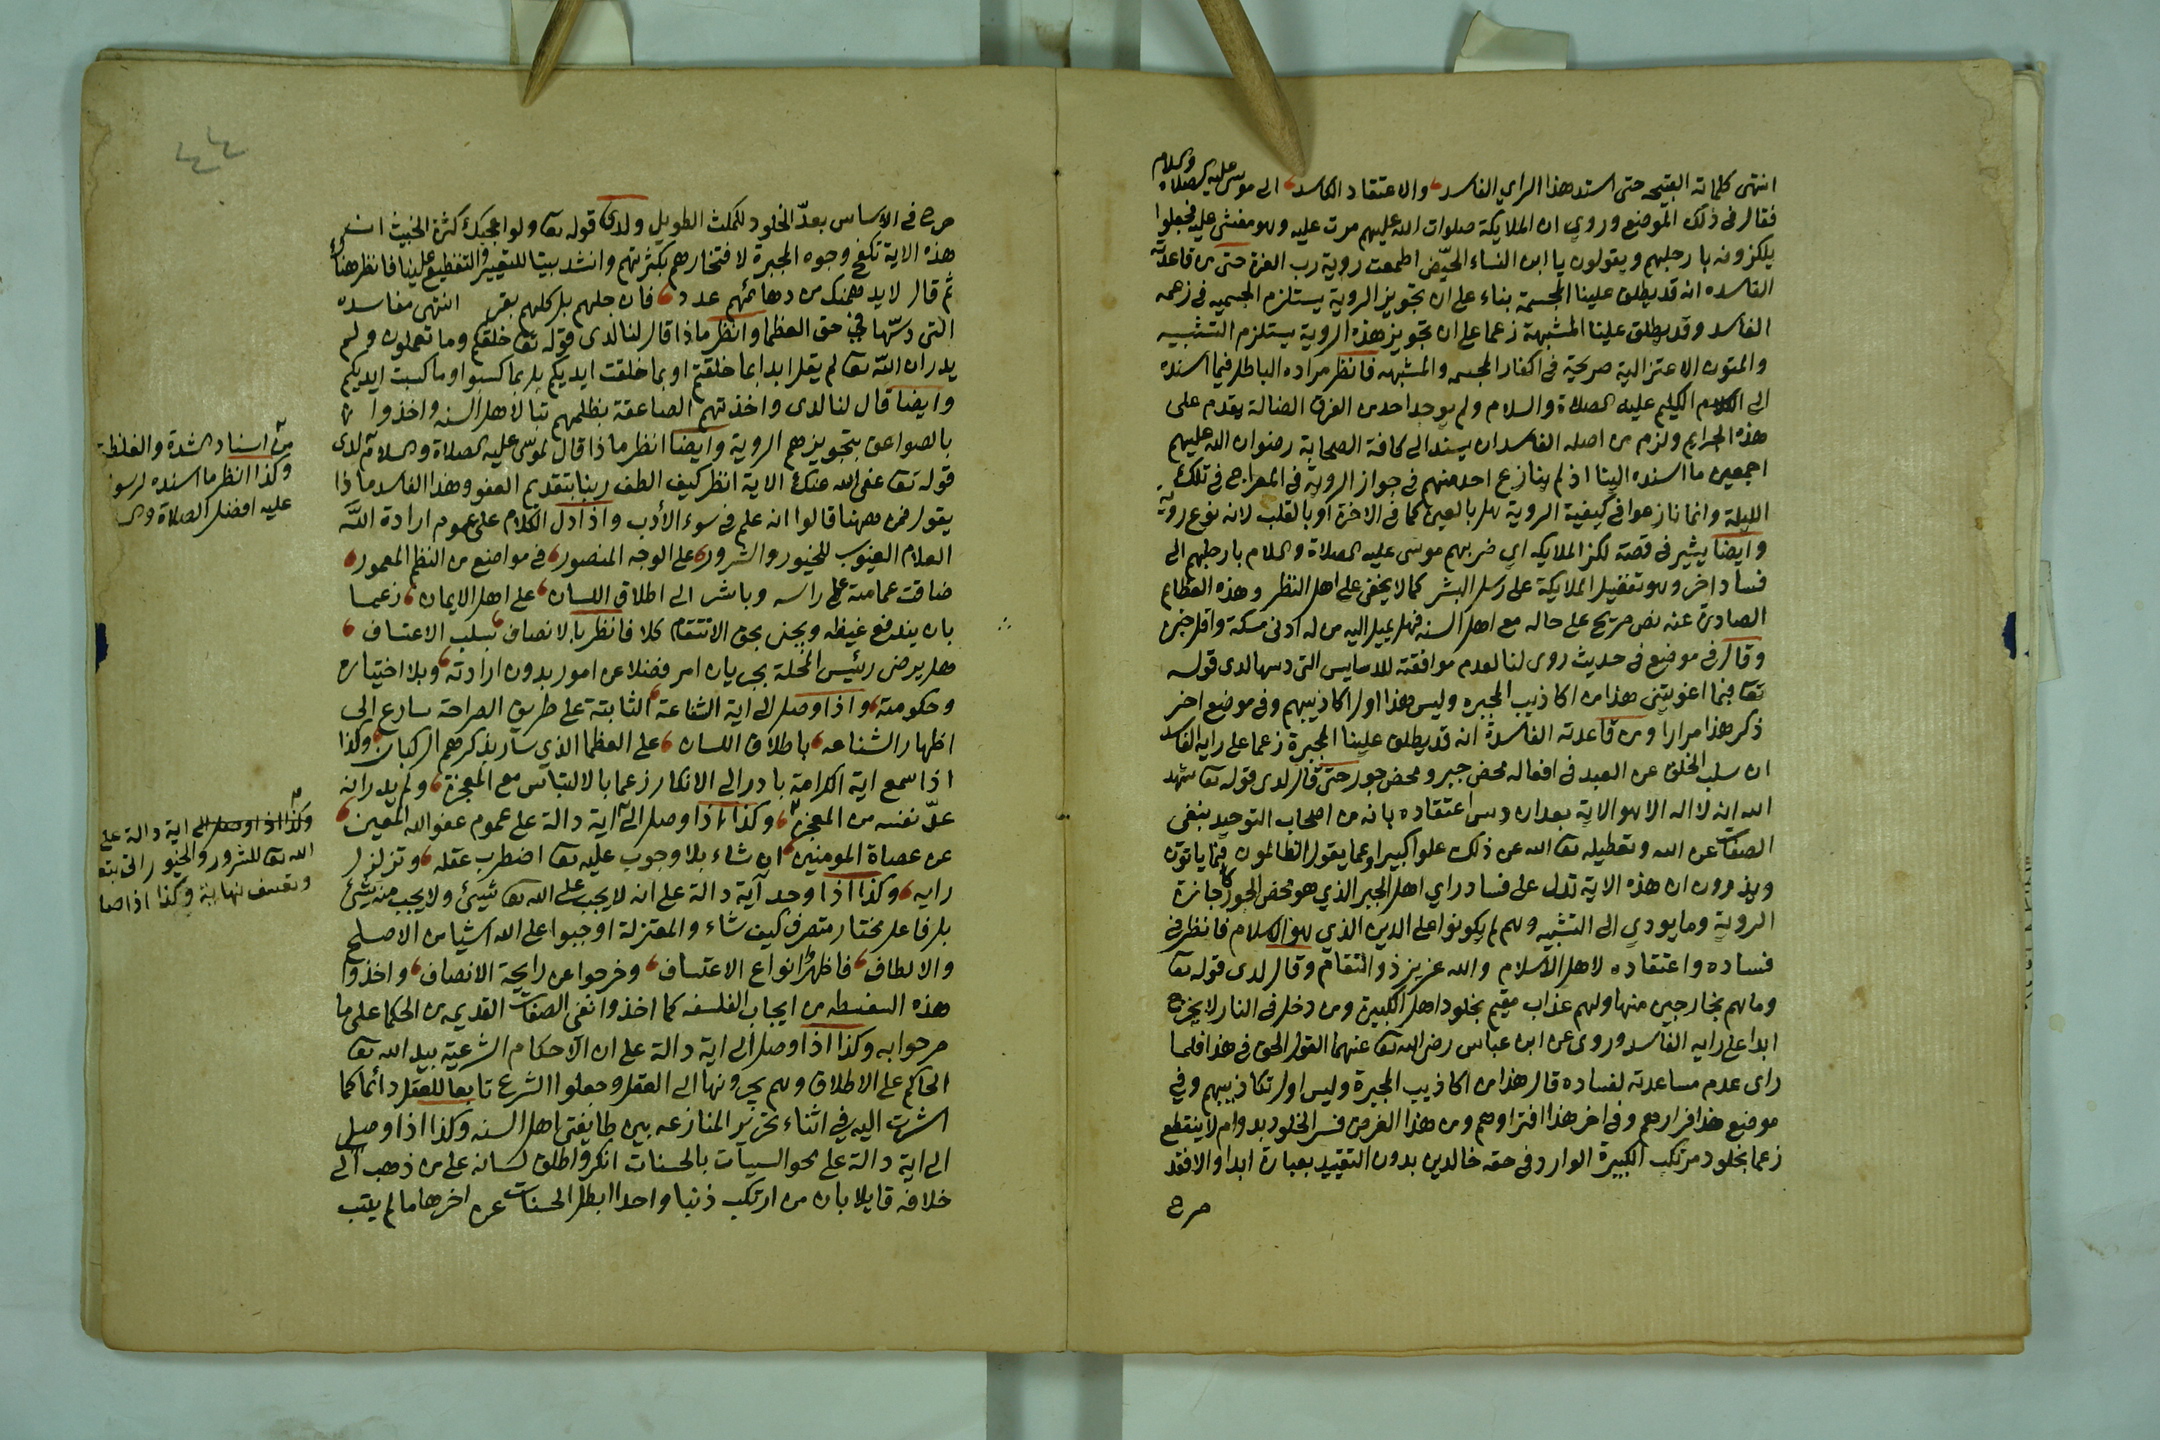 انتهى كلماته القبيحه حتى اسند هذا الراي الفاسد والاعتقاد الكاسد الى موسى عليه الصلاة والسلام
فقال في ذلك الموضع وروي ان الملايكة صلوات الله عليهم مرت عليه وهو مغشي عليه فجعلوا
يلكزونه بارجلهم ويقولون يا ابن النساء الحيّض اطمعت روية رب العزة حتى من قاعدته
الفاسده انه قد يطلق علينا المجسمة بناء على ان تجويز الروية يستلزم الجسميه في زعمه
الفاسد وقد يطلق علينا المشبهة زعما على ان تجويز هذه الروية يستلزم التشبيه
والمتون الاعتزالية صريحة في اكفار المجسمه والمشبهه فانظر مراده الباطل فيما اسنده
الى الكليم عليه الصلاة والسلام ولم يوجد احد من الفرق الضالة يقدم على
هذه الجرايم ولزم من اصله الفاسد ان يسند الى كافة الصحابة رضوان الله عليهم
اجمعين ما اسنده الينا اذ لم ينازع احد منهم في جواز الروية في المعراج في تلك
الليلة وانما نازعوا في كيفية الروية هل بالعين كما في الاخرة او بالقلب لانه نوع روية
وايضا يشير في قصة لكز الملايكه اي ضربهم موسى عليه الصلاة والسلام بارجلهم الى
فساد اخر وهو تفضيل الملايكة على رسل البشر كما لا يخفى على اهل النظر وهذه العظايم
الصادرة عنه نص صريح على حاله مع اهل السنه فهل يميل اليه من له ادنى مسكة واقل خبرة
وقال في موضع في حديث روى لنا لعدم موافقته للاسايس التي دسها لدى قوله
تعا فبما اغويتني هذا من اكاذيب المجبره وليس هذا اول اكاذيبهم وفي موضع اخر
ذكر هذا مرارا ومن قاعدته الفاسدة انه قد يطلق علينا المجبرة زعما على رايه الفاسد
ان سلب الخلق عن العبد في افعاله محض جبر ومحض جور حتى قال لدى قوله تعا شهد
الله انه لا اله الا هو الاية بعد ان دس اعتقاده بانه من اصحاب التوحيد بنفي
الصفات عن الله وتعطيله تعا الله عن ذلك علوا كبيرا وعما يقول الظالمون فيما ياتون
ويذرون ان هذه الاية تدل على فساد راي اهل الجبر الذي هو محض الجور كاجازة
الروية وما يودي الى التشبيه وهم لم يكونوا على الدين الذي هو الاسلام فانظر في
فساده واعتقاده لاهل الاسلام والله عزيز ذو انتقام وقال لدى قوله تعا
وما هم بخارجين منها ولهم عذاب مقيم بخلود اهل الكبيرة ومن دخل في النار لا يخرج
ابدا على رايه الفاسد وروى عن ابن عباس رضى الله تعا عنهما القول الحق في هذا فلما
راى عدم مساعدته لفساده قال هذا من اكاذيب المجبرة وليس اول تكاذيبهم وفي
موضع هذا فرارهم وفي اخر هذا افتراوهم ومن هذا الغرض فسر الخلود بدوام لا ينقطع
زعما بخلود مرتكب الكبيرة الوارد في حقه خالدين بدون التقييد بعبارة ابدا والا فقد
صرح
٤٤
صرح في الاساس بعدّ الخلود للمكث الطويل ولدى قوله تعا ولو اعجبك كثرة الخبيث ان
هذه الاية تكفح وجوه المجبرة لافتخارهم بكثرتهم وانشد بيتا للتعيير والتفظيع علينا فانظر هناك
ثم قال لا يدهمنك من دهمائهم عدد فان جلهم بل كلهم بقر انتهى مفاسده
التي دسّها في حق العظما وانظر ماذا قال لنا لدى قوله تعا خلقكم وما تعملون ولم
يدر ان الله تعا لم يقل ابدا بما خلقتم او بما خلقت ايديكم بل بما كسبوا وما كسبت ايديكم
وايضا قال لنا لدى واخذتهم الصاعقة بظلمهم تبا لاهل السنه واخذوا
بالصواعق بتجويزهم الروية وايضا انظر ماذا قال لموسى عليه الصلاة والسلام لدى
قوله تعا عفى الله عنك الاية انظر كيف الطف ربنا بتقديم العفو وهذا الفاسد ماذا
يقول فمن ههنا قالوا انه علم في سوء الأدب واذا دل الكلام على عموم ارادة الله
العلام الغيوب للخيور والشرور على الوجه المنصور في مواضع من النظم المعمور
ضاقت عمامته على راسه وباشر الى اطلاق اللسان على اهل الايمان زعما
بان يندفع غيظه ويجني بحق الانتقام كلا فانظر بالانصاف بسلب الاعتساف
هل يرضى رئيس المحلة بجريان امر فضلا عن امور بدون ارادته وبلا اختياره
وحكومته واذا وصل الى اية الشفاعة الثابتة على طريق الصراحة سارع الى
اظهار الشناعه باطلاق اللسان على العظما الذي سار بذكرهم الركبان وكذا
اذا سمع اية الكرامة بادر الى الانكار زعما بالالتباس مع المعجزة ولم يدر انه
عدّ نفسه من المعجزة وكذا اذا وصل الى اية دالة على عموم عفو الله المعين
عن عصاة المومنين ان شاء بلا وجوب عليه تعا اضطرب عقله وتزلزل
رايه وكذا اذا وجد آية دالة على انه لا يجب على الله تعا شيئ ولا يجب منه شيئ
بل فاعل مختار متصرف كيف شاء والمعتزلة اوجبوا على الله اشيا من الاصلح
والالطاف فاظهر انواع الاعتساف وخرجوا عن رايحة الانصاف واخذوا
هذه السفسطه من ايجاب الفلسفه كما اخذوا نفي الصفات القديمه من الحكما على ما
صرحوا به وكذا اذا وصل الى اية دالة على ان الاحكام الشرعية بيد الله تعا
الحاكم على الاطلاق وهم يجرونها الى العقل وجعلوا الشرع تابعا للعقل دائما كما
اشرت اليه في اثناء تحرير المنازعه بين طايفتى اهل السنه وكذا اذا وصل
الى اية دالة على محو السيات بالحسنات انكر واطلق لسانه على من ذهب الى
خلافه قايلا بان من ارتكب ذنبا واحدا ابطل الحسنات عن اخرها ما لم يتب
من اسناد الشدة والغلظة
وكذا انظر ما اسنده لرسو
عليه افضل الصلاة وال
وكذا اذا وصل الى اية دالة على
الله تعا للشرور والخيور
وتعسف نهاية وكذا اذا